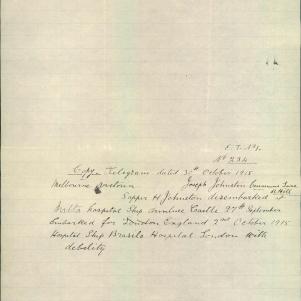 E.T. No 1.
No 234
Copy Telegram dated 30th October 1915
Melbourne Joseph Johnston
Sapper H Johnston disembarked at
Malta hospital Ship Castle 27th September
Embarked for London England 2nd October 1915
Hospital Ship Brasila Hospital London with
debility